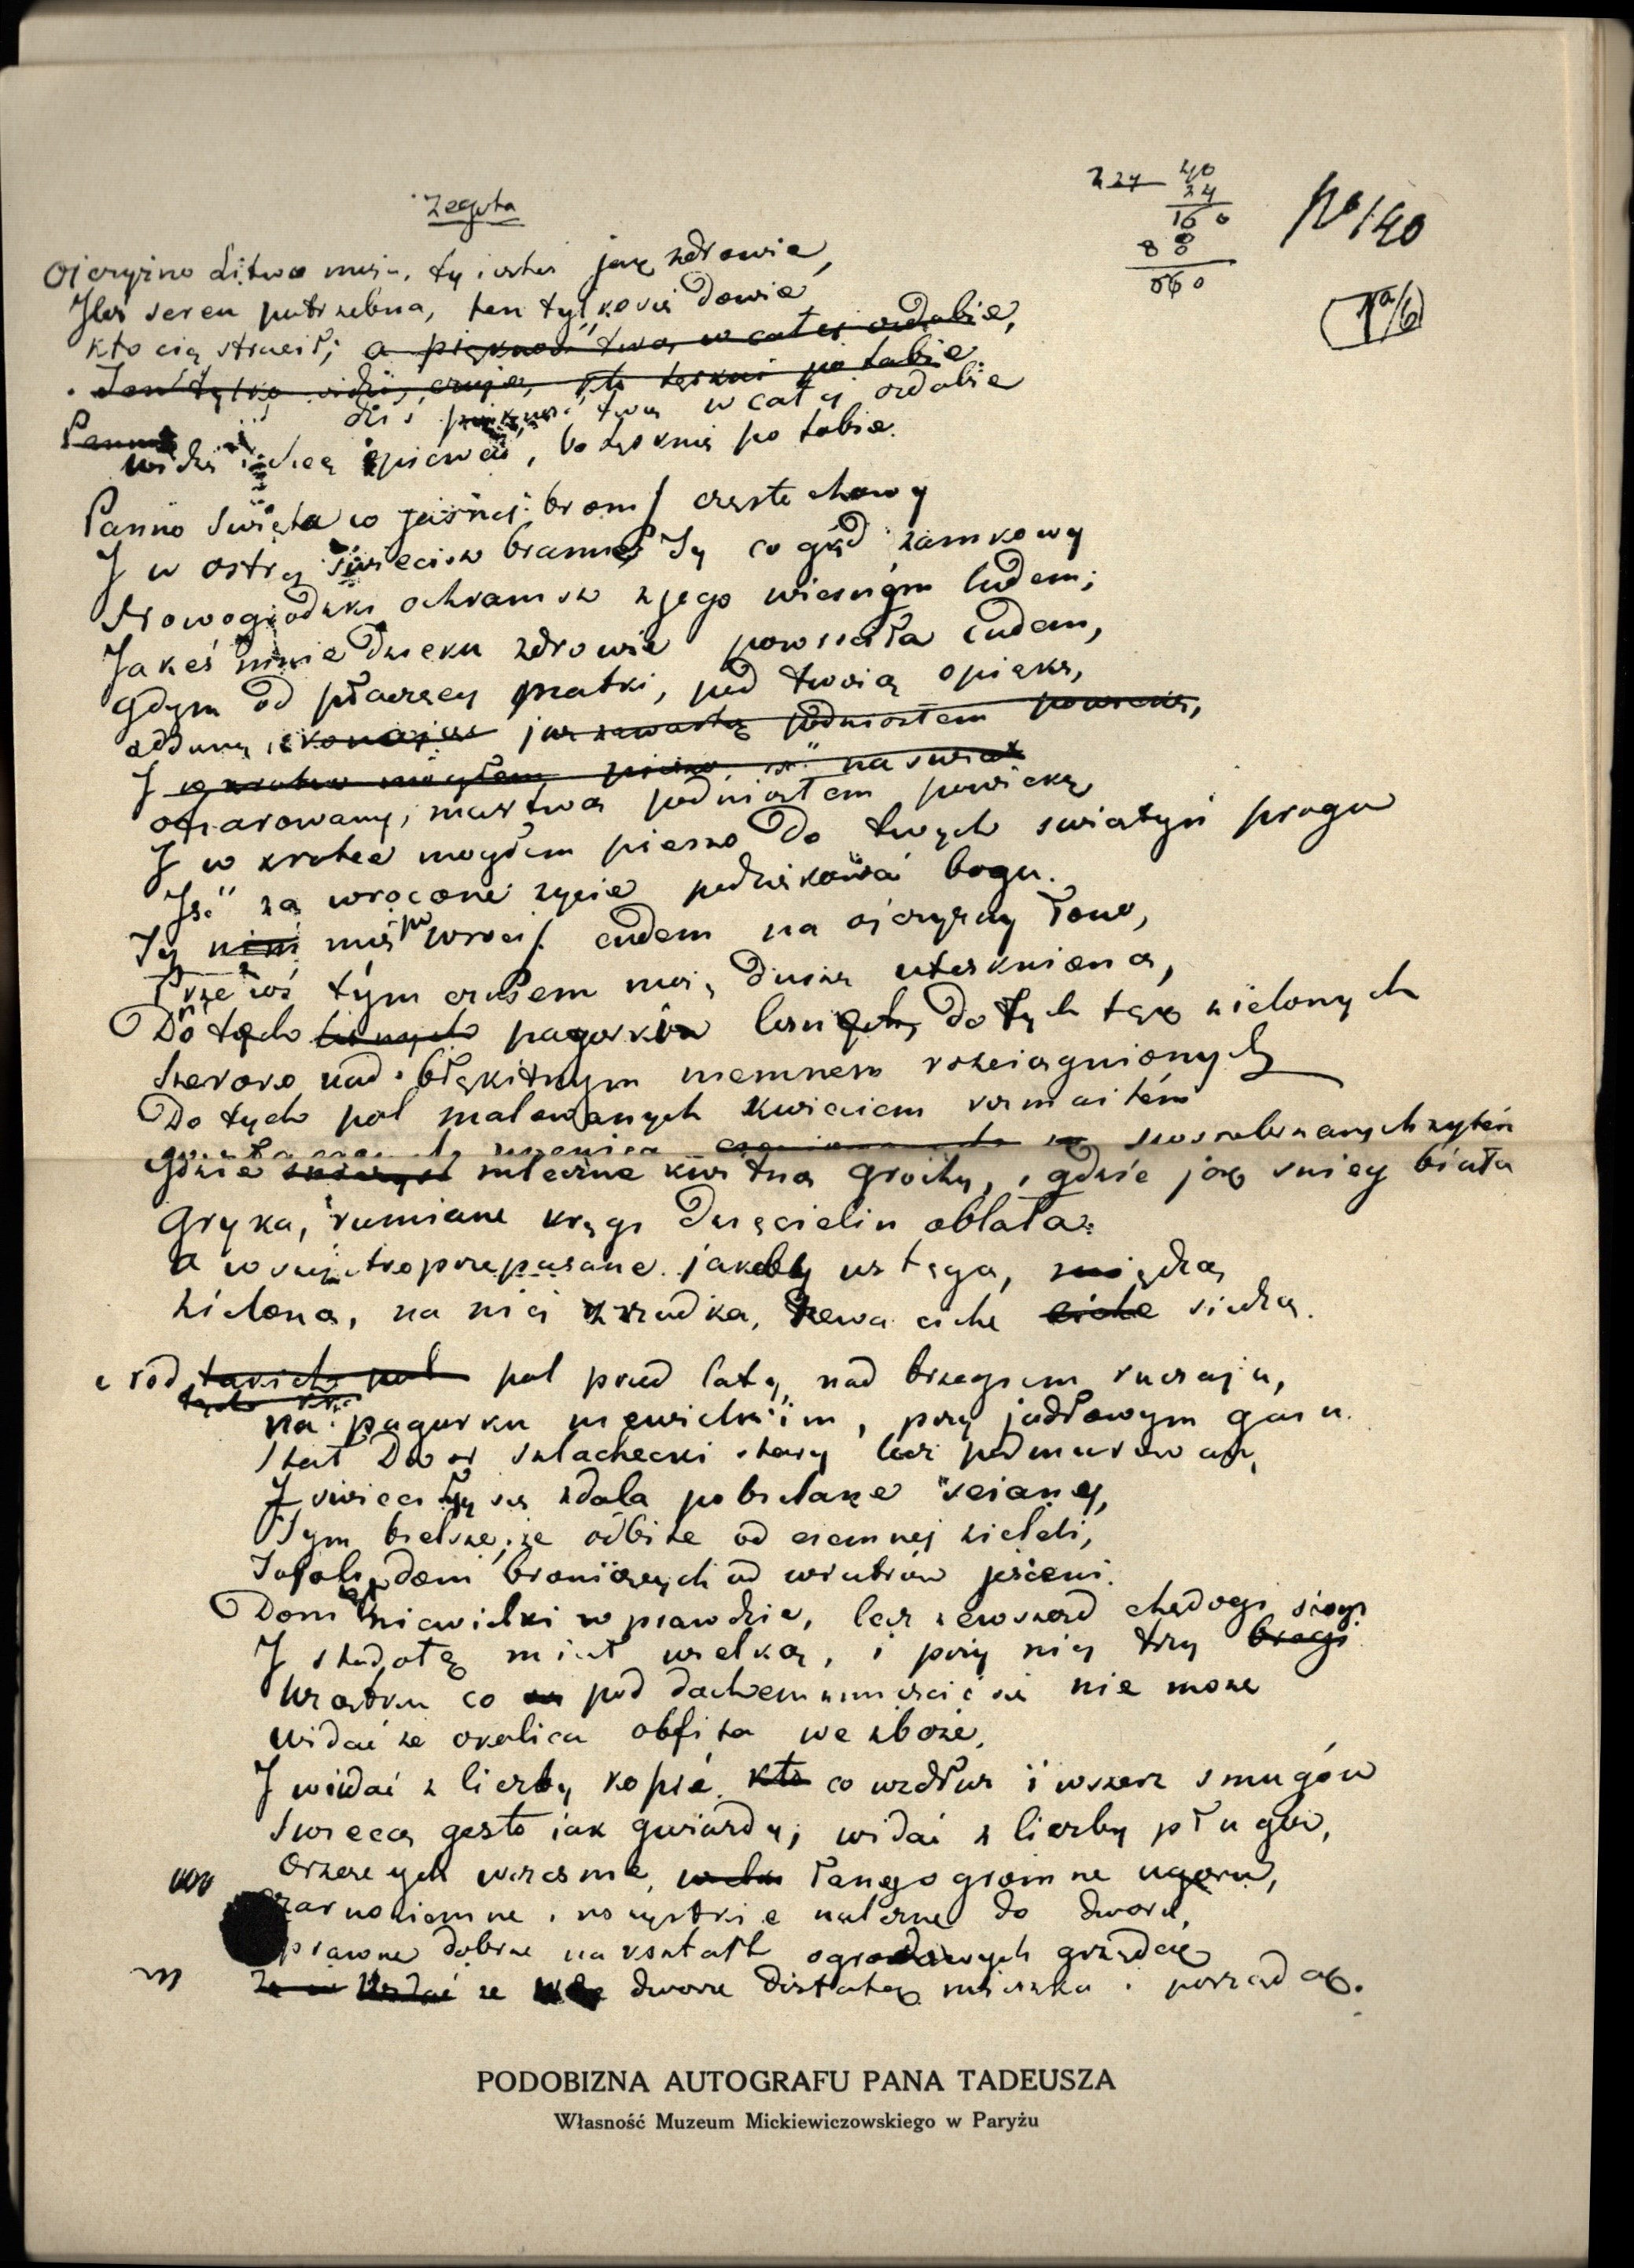 Żegota
224 40
24
160
8 8
560
No 140
1a/6
Ojczyzno Litwo moja, ty iesteś jak zdrowie,
Ileś cenna potrzebna, ten tylko się dowie
kto cię stracił; a piękność twą w całej ozdobie,
Ten tylko widzi, czuje, kto tęskni po tobie
dziś piękność twą w całej ozdobie
Panno
widzę i chcę śpiewać, bo tęsknię po tobie.
Panno święta co jasnej bronisz częstochowy
I w ostrej świecisz bramie Ty co gród zamkowy
Nowogrodzki ochraniasz z jego wiernym ludem;
Jakeś mnie dziecku zdrowie powrociła cudem,
Gdym od płaczącej matki, pod twoią opiekę,
oddany, konając już zawartą podniosłem powiekę,
I w krotce mogłem pieszo iść na świat
ofiarowany, martwą podniosłem powiekę
I w krotce mogłem pieszo do twych świątyń progu
Iść za wrocone życie podziękować bogu.
Ty nim mię powrocisz cudem na ojczyzny łono,
Przenoś tym czasem moię duszę utęsknioną,
Do tych leśnych pagórków leśnych, do tych łąk zielonych
Szeroko nad błękitnym niemnem rozciągnionych
Do tych pol malowanych kwieciem rozmaitém
pszenicą posrebrzanych żytem
gdzie mleczne kwitną grochy, gdzie jak śnieg biała
Gryka, rumiane kręgi dzięcielin oblała.
a wszystko przepasane jakoby wstęgą, miedzą
zieloną, na niej zrzadka, drzewa ciche ciche siedzą.
śród takich pol pol przed laty, nad brzegiem ruczaju,
tych
na pagorku niewielkim, przy jodłowym gaju.
Stał Dwor szlachecki stary lecz podmurowany,
I świeciły się zdala pobielane ściany,
Tym bielsze, że odbite od ciemnej zieleni,
Topoli, co dom bronią od wiatrów jesieni.
Dom niewielki w prawdzie, lecz zewsząd chędogi stogi
I stodołę miał wielką, i przy niej trzy brogi
Użątku co pod dachem zmieścić się nie może
Widać że okolica obfita we zboże,
I widać z liczby kopic kto co wzdłuż i wszerz smugów
Świecą gęsto iak gwiazdy; widać z liczby pługów,
Orzących wczesnie łany ogromne ugoru,
Czarnoziemne, wszystkie należne do dworu,
Uprawne dobrze na kształt ogrodowych grządek
Widać że dworze dostatek mieszka i porządek.
PODOBIZNA AUTOGRAFU PANA TADEUSZA
Własność Muzeum Mickiewiczowskiego w Paryżu